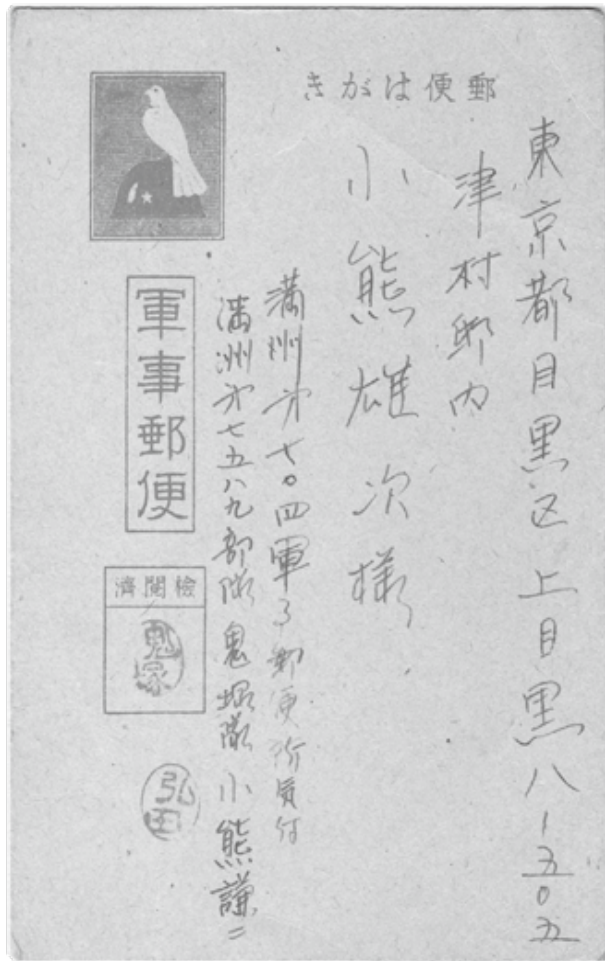 郵便はがき
東京都目黒区上目黒八ノ五〇五
津村邸内
小熊雄次様
満洲第七〇四軍事郵便所気付
満洲第七五八九部隊鬼塚隊小熊謙二
軍事郵便
檢閲濟
鬼塚
弘田